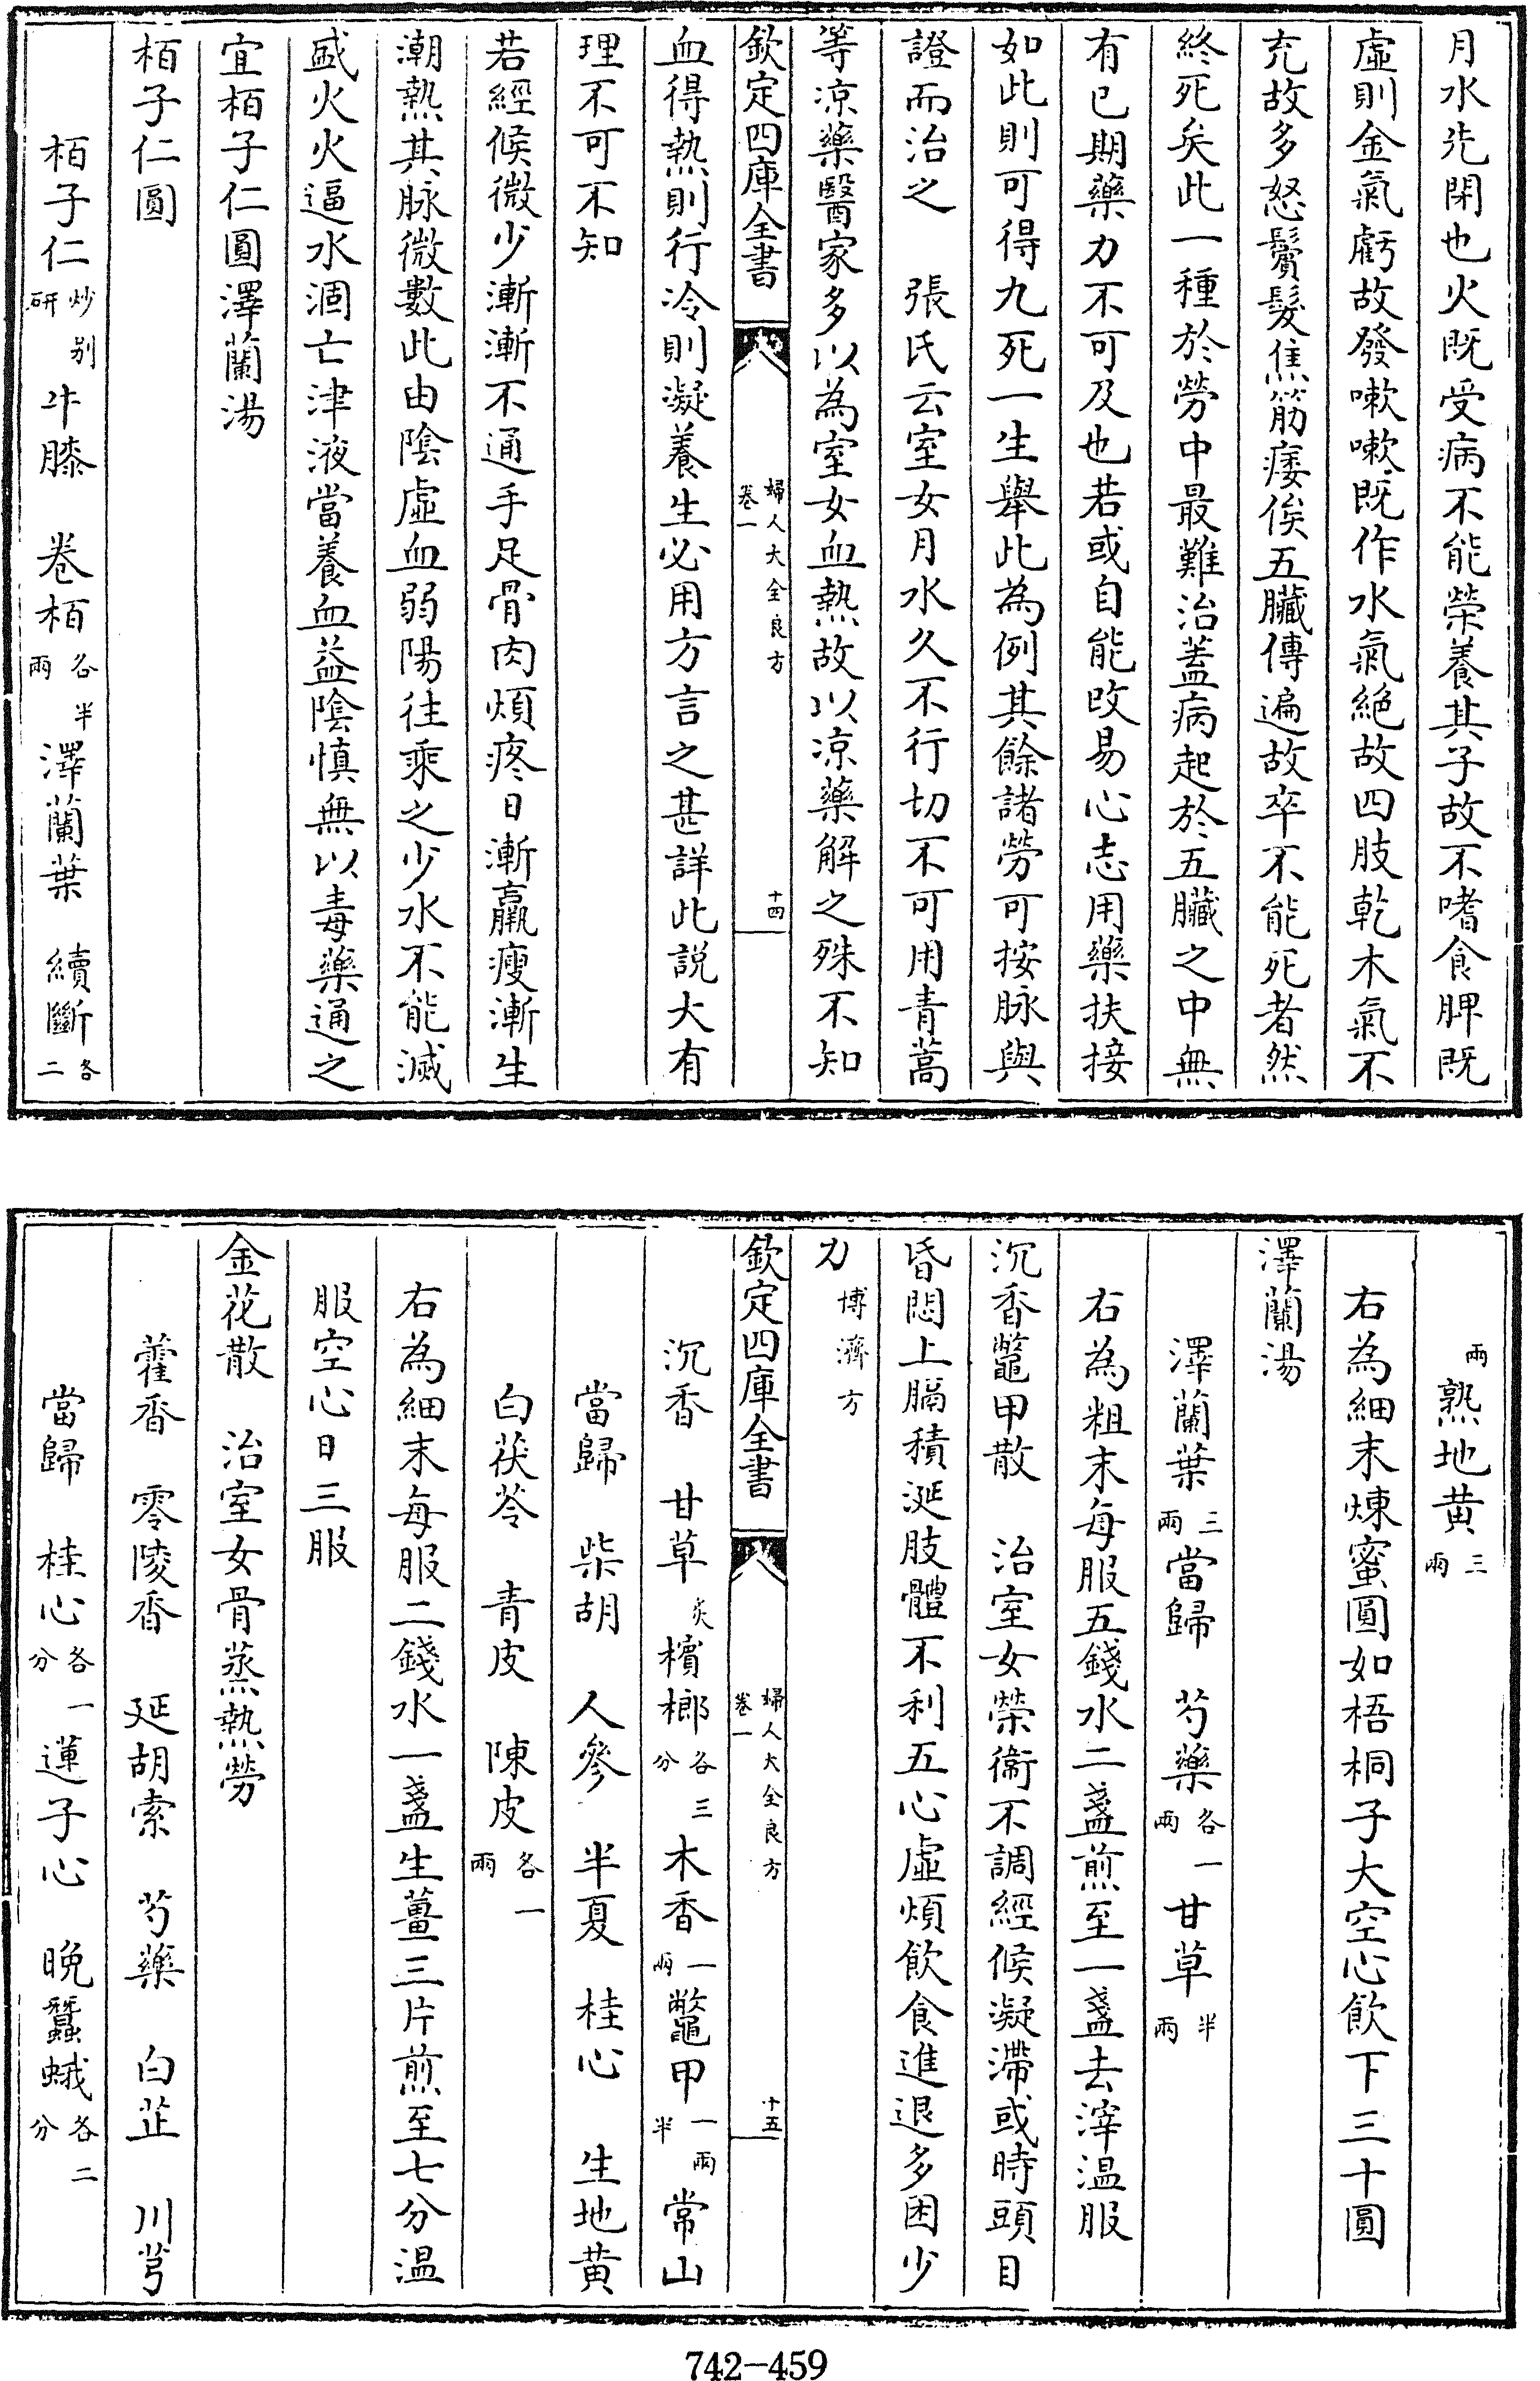 月水先閉也火既受病不能榮養其子故不嗜食脾既
虛則金氣虧故發嗽嗽既作水氣絶故四肢乾木氣不
充故多怒鬢髮焦筋痿俟五臟傳遍故卒不能死者然
終死矣此一種於勞中最難治蓋病起於五臟之中無
有已期藥力不可及也若或自能改易心志用藥扶接
如此則可得九死一生舉此為例其餘諸勞可按脉與
證而治之 張氏云室女月水久不行切不可用青蒿
等凉藥醫家多以為室女血熱故以凉藥解之殊不知
欽定四庫全書 婦人大全良方 卷一 十四
血得熱則行冷則凝養生必用方言之甚詳此説大有
理不可不知
若經候微少漸漸不通手足骨肉煩疼日漸羸瘦漸生
潮熱其脉微數此由陰虛血弱陽往乘之少水不能滅
盛火火逼水涸亡津液當養血益陰慎無以毒藥通之
宜栢子仁圓澤蘭湯
栢子仁圓
栢子仁炒别研 牛膝 卷栢各半兩 澤蘭葉 續斷各二
兩 熟地黄三兩
右為細末煉蜜圓如梧桐子大空心飲下三十圓
澤蘭湯
澤蘭葉三兩 當歸 芍藥各一兩 甘草半兩
右為粗末每服五錢水二盞煎至一盞去滓温服
沉香鼈甲散 治室女榮衞不調經候凝滯或時頭目
昏悶上膈積涎肢體不利五心虛煩飲食進退多困少
力 博濟方
欽定四庫全書 婦人大全良方 卷一 十五
沉香 甘草炙 檳榔各三分 木香一兩 鼈甲一兩半 常山
當歸 柴胡 人參 半夏 桂心 生地黄
白茯苓 青皮 陳皮各一兩
右為細末每服二錢水一盞生薑三片煎至七分温
服空心日三服
金花散 治室女骨蒸熱勞
藿香 零陵香 延胡索 芍藥 白芷 川芎
當歸 桂心各一分 蓮子心 晚蠶蛾各二分
742-459